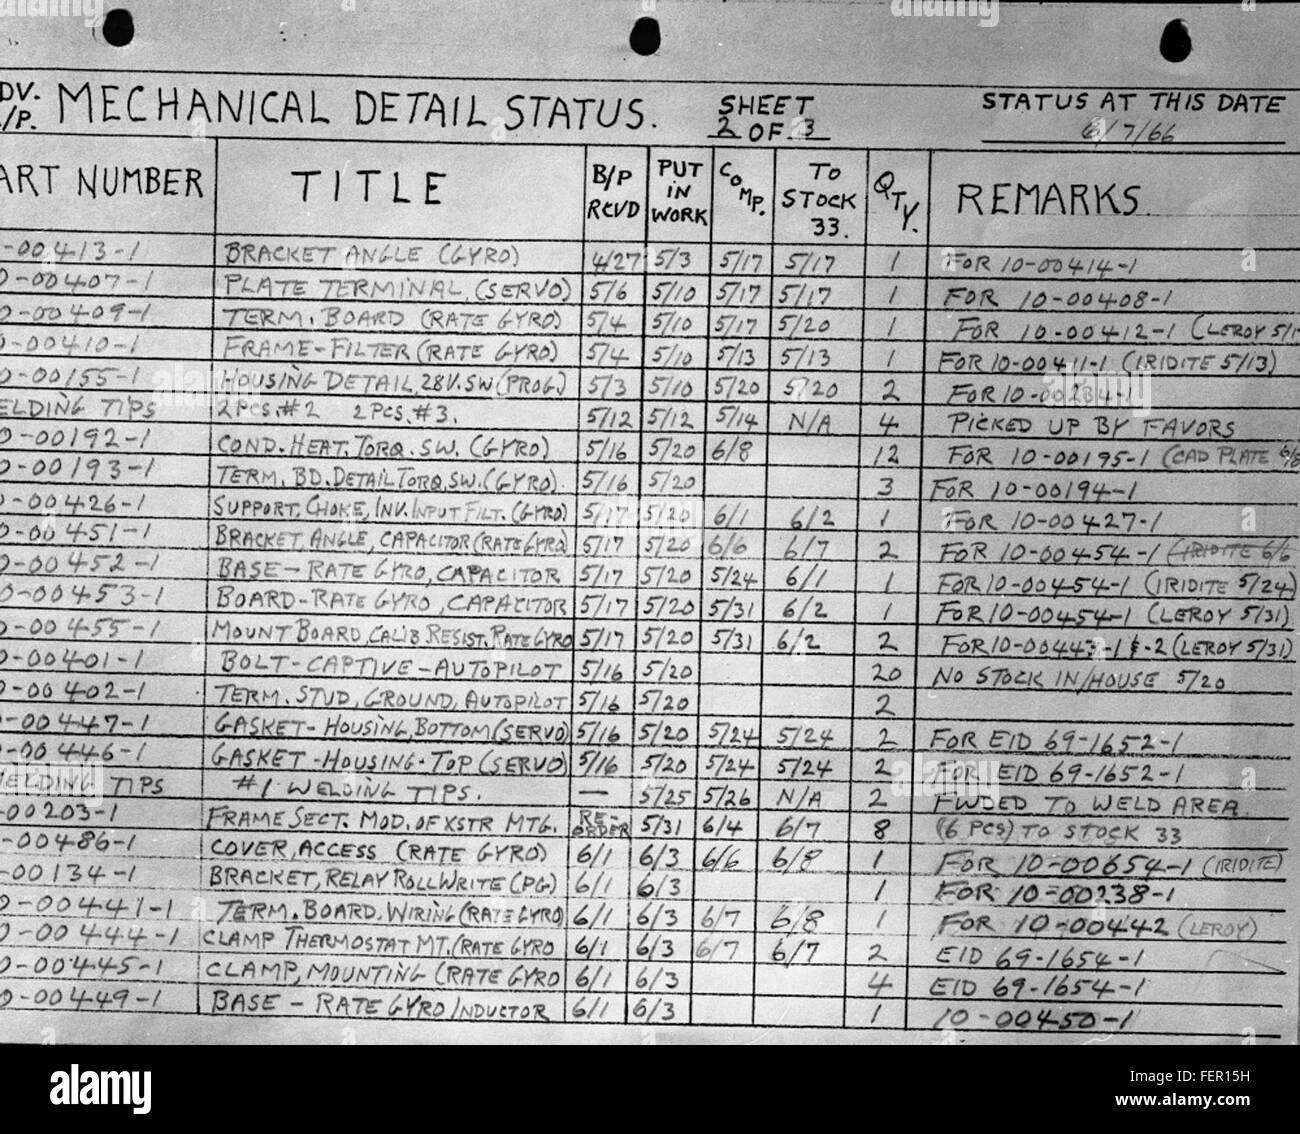 DV. MECHANICAL DETAIL STATUS. SHEET STATUS AT THIS DATE
/P. 2 OF 3 6/7/66
ART NUMBER TITLE B/P RCVD PUT IN WORK COMP. TO STOCK 33. QTY. REMARKS.
-00413-1 BRACKET ANGLE (GYRO) 4/27 5/3 5/17 5/17 1 FOR 10-00414-1
0-00407-1 PLATE TERMINAL, (SERVO) 5/6 5/10 5/17 5/17 1 FOR 10-00408-1
0-00409-1 TERM. BOARD (RATE GYRO) 5/4 5/10 5/17 5/20 1 FOR 10-00412-1 (LEROY 5/17
0-00410-1 FRAME-FILTER (RATE GYRO) 5/4 5/10 5/13 5/13 1 FOR 10-00411-1 (IRIDITE 5/13)
0-00155-1 HOUSING DETAIL, 28V. SW (PROG.) 5/3 5/10 5/20 5/20 2 FOR 10-00234-1
ELDING TIPS 2 PCS. #2 2 PCS. #3. 5/12 5/12 5/14 N/A 4 PICKED UP BY FAVORS
0-00192-1 COND. HEAT. TORQ. SW. (GYRO) 5/16 5/20 6/8 12 FOR 10-00195-1 (CAD PLATE 6/8
0-00193-1 TERM. BD. DETAIL TORQ. SW. (GYRO). 5/16 5/20 3 FOR 10-00194-1
0-00426-1 SUPPORT, CHOKE, INV. INPUT FILT. (GYRO) 5/17 5/20 6/1 6/2 1 FOR 10-00427-1
0-00451-1 BRACKET, ANGLE, CAPACITOR (RATE GYRO) 5/17 5/20 6/6 6/7 2 FOR 10-00454-1 (IRIDITE 6/6
0-00452-1 BASE-RATE GYRO, CAPACITOR 5/17 5/20 5/24 6/1 1 FOR 10-00454-1 (IRIDITE 5/24)
0-00453-1 BOARD-RATE GYRO, CAPACITOR 5/17 5/20 5/31 6/2 1 FOR 10-00454-1 (LEROY 5/31)
0-00455-1 MOUNT BOARD, CALIB RESIST. RATE GYRO 5/17 5/20 5/31 6/2 2 FOR 10-00443-1 & -2 (LEROY 5/31)
0-00401-1 BOLT-CAPTIVE-AUTOPILOT 5/16 5/20 20 NO STOCK IN/HOUSE 5/20
0-00402-1 TERM. STUD, GROUND, AUTOPILOT 5/16 5/20 2
0-00447-1 GASKET-HOUSING, BOTTOM (SERVO) 5/16 5/20 5/24 5/24 2 FOR EID 69-1652-1
0-00446-1 GASKET-HOUSING-TOP (SERVO) 5/16 5/20 5/24 5/24 2 FOR EID 69-1652-1
WELDING TIPS #1 WELDING TIPS. — 5/25 5/26 N/A 2 FWDED TO WELD AREA.
-00203-1 FRAME SECT. MOD. OF XSTR MTG. RE-ORDER 5/31 6/4 6/7 8 (6 PCS) TO STOCK 33
-00486-1 COVER, ACCESS (RATE GYRO) 6/1 6/3 6/6 6/8 1 FOR 10-00654-1 (IRIDITE)
-00134-1 BRACKET, RELAY ROLL WRITE (PG) 6/1 6/3 1 FOR 10-00238-1
0-00441-1 TERM. BOARD. WIRING (RATE GYRO) 6/1 6/3 6/7 6/8 1 FOR 10-00442 (LEROY)
0-00444-1 CLAMP THERMOSTAT MT. (RATE GYRO 6/1 6/3 6/7 6/7 2 EID 69-1654-1
0-00445-1 CLAMP, MOUNTING (RATE GYRO 6/1 6/3 4 EID 69-1654-1
0-00449-1 BASE - RATE GYRO INDUCTOR 6/1 6/3 1 10-00450-1
alamy
Image ID: FER15H
www.alamy.com